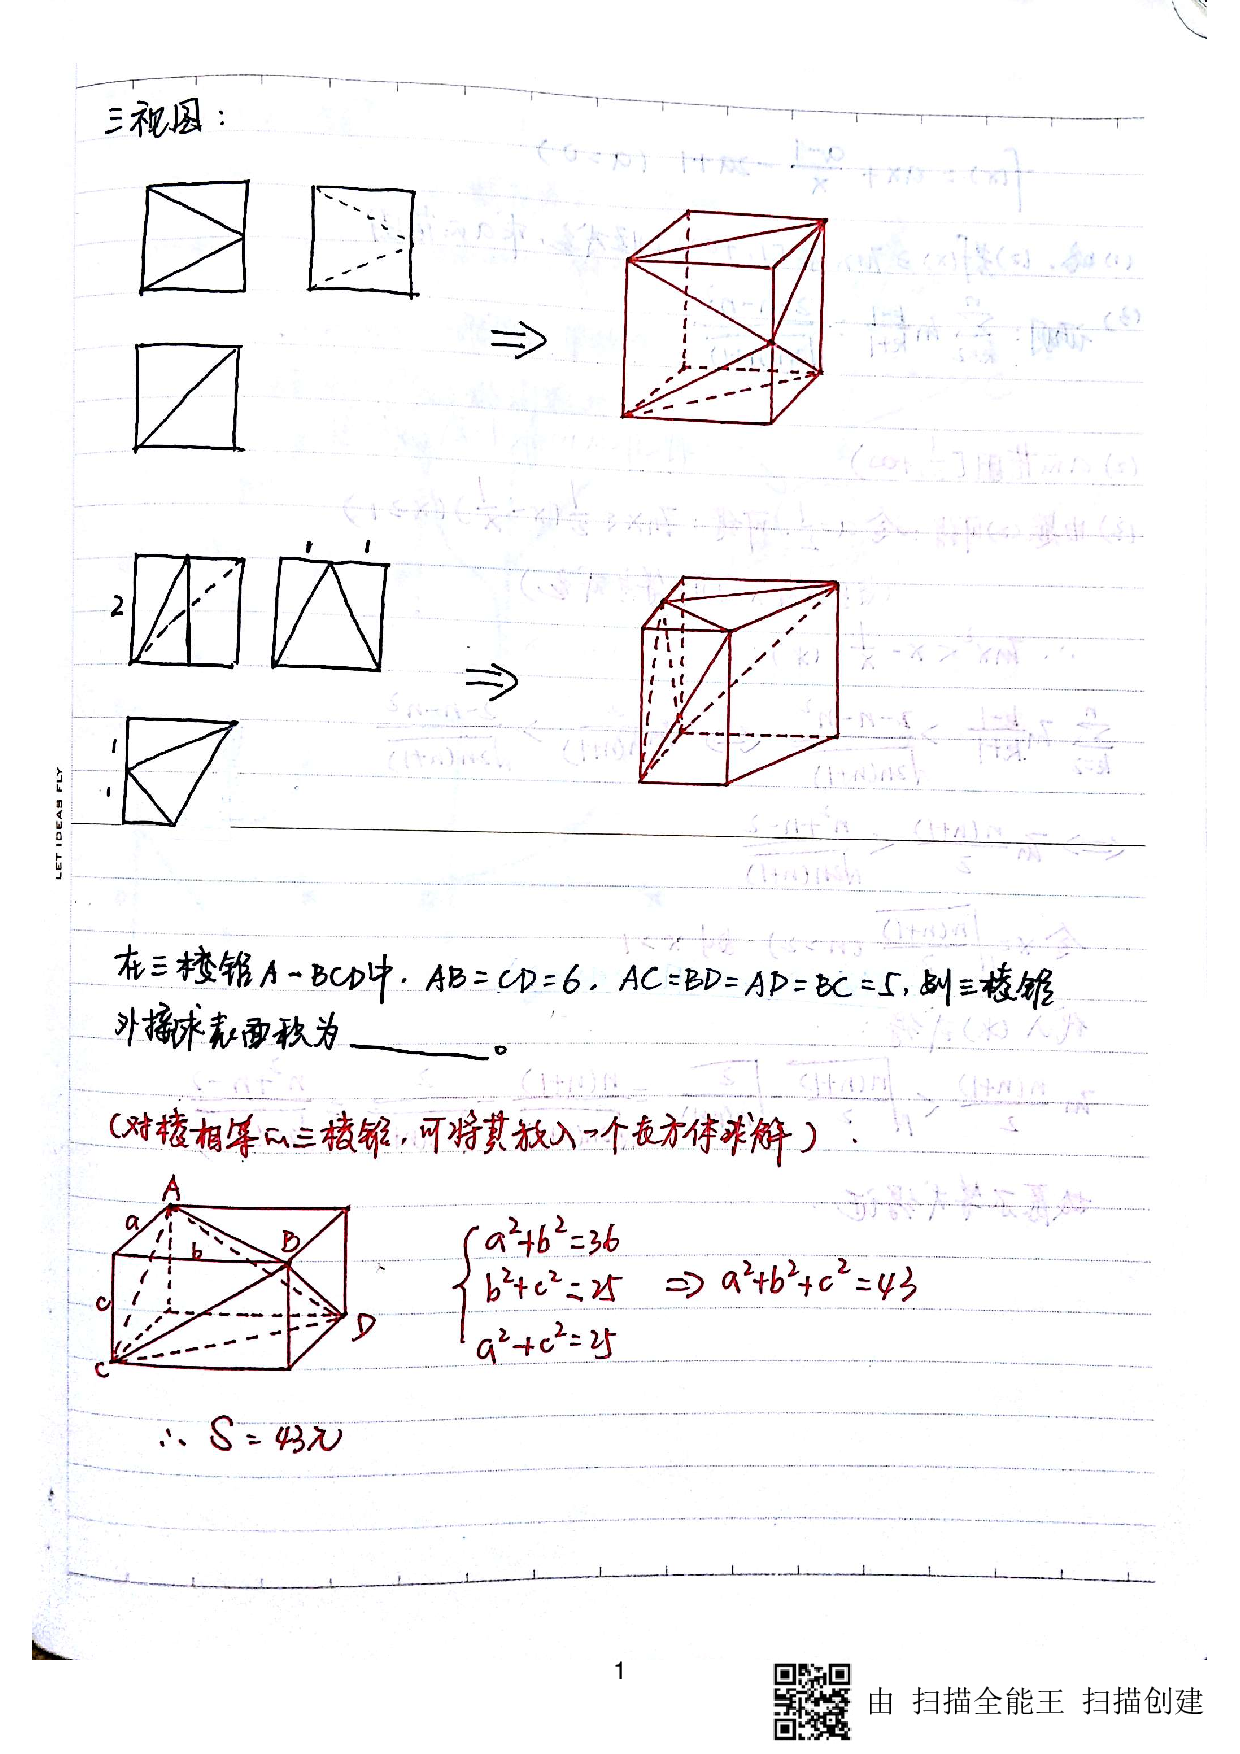 三视图:
2
1 1
1
1
LET IDEAS FLY
在三棱锥A-BCD中. AB=CD=6. AC=BD=AD=BC=5, 则三棱锥
外接球表面积为______。
(对棱相等的三棱锥,可将其放入一个长方体求解).
A
a
b
B
c
D
C
a²+b²=36
b²+c²=25 ⇒ a²+b²+c²=43
a²+c²=25
∴ S=43π
1
由 扫描全能王 扫描创建